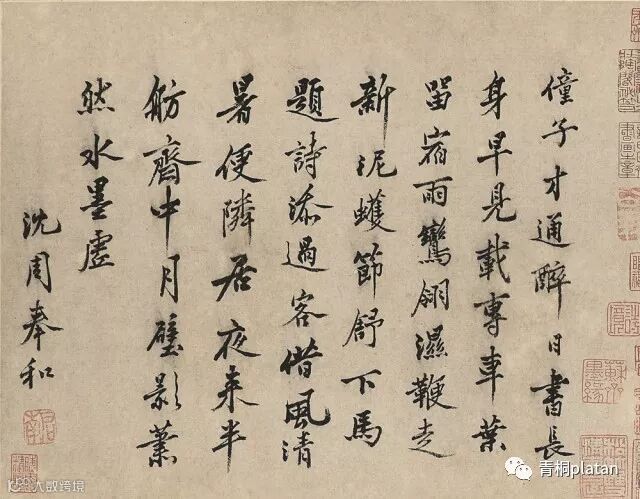 僮子才通醉日書長
身早見載專車葉
留宿雨鸞翎濕鞭走
新泥蠖節舒下馬
題詩添過客借風清
暑便隣居夜来半
舫齋中月壁影蕭
然水墨虛
沈周奉和
青桐platan
大数跨境